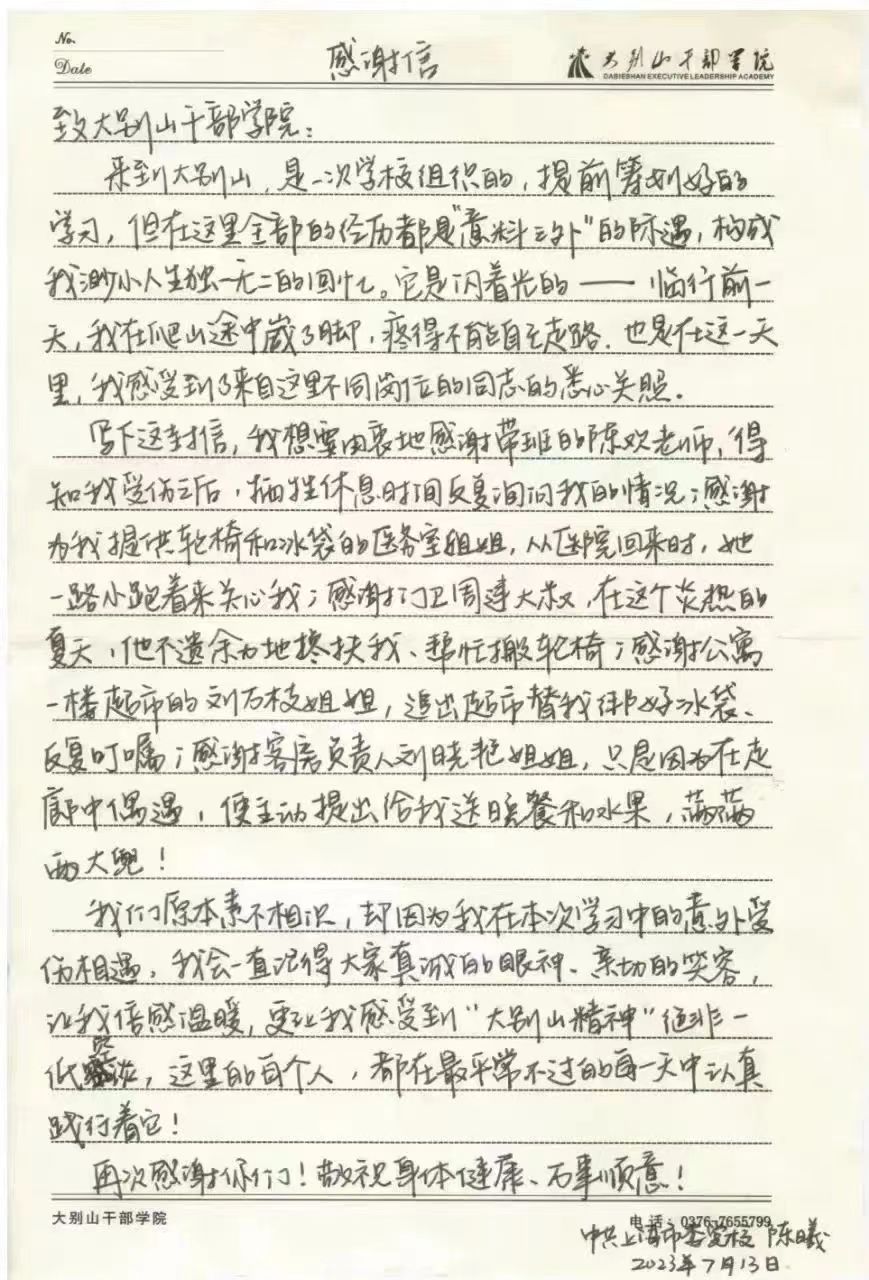 No.
Date
感谢信
大别山干部学院
DABIESHAN EXECUTIVE LEADERSHIP ACADEMY
致大别山干部学院：
来到大别山，是一次学校组织的，提前筹划好的
学习，但在这里全部的经历都是“意料之外”的际遇，构成
我渺小人生独一无二的回忆。它是闪着光的——临行前一
天，我在爬山途中崴了脚，疼得不能自主走路．也是在这一天
里，我感受到了来自这里不同岗位的同志的悉心关照。
写下这封信，我想要由衷地感谢带班的陈欢老师，得
知我受伤之后，牺牲休息时间反复询问我的情况；感谢
为我提供轮椅和冰袋的医务室姐姐，从医院回来时，她
一路小跑着来关心我；感谢门卫周建大叔，在这个炎热的
夏天，他不遗余力地搀扶我、帮忙搬轮椅；感谢公寓
一楼超市的刘石枝姐姐，追出超市替我绑好冰袋、
反复叮嘱；感谢客房负责人刘晓艳姐姐，只是因为在走
廊中偶遇，便主动提出给我送晚餐和水果，满满
两大兜！
我们原本素不相识，却因为我在本次学习中的意外受
伤相遇，我会一直记得大家真诚的眼神、亲切的笑容，
让我倍感温暖，更让我感受到“大别山精神”绝非一
纸空谈，这里的每个人，都在最平常不过的每一天中认真
践行着它！
再次感谢你们！敬祝身体健康、万事顺意！
大别山干部学院
电话：0376-7655799
中共上海市委党校 陈曦
2023年7月13日